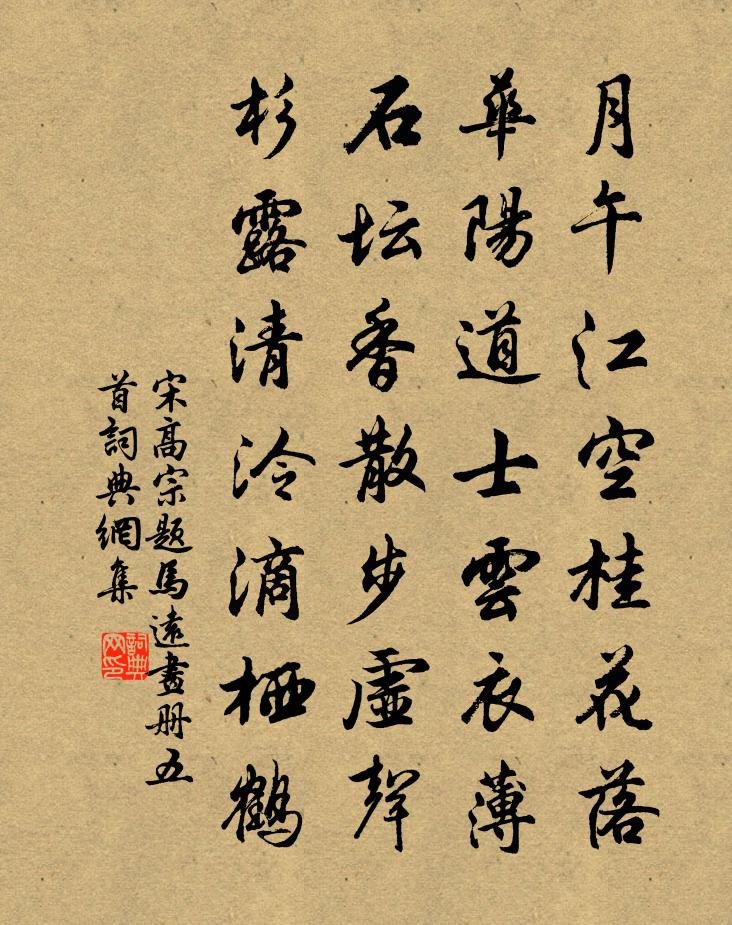 月午江空桂花落
華陽道士雲衣薄
石坛香散步虛聲
杉露清泠滴栖鶴
宋高宗题馬遠畫册五
首詞典網集
詞典网印